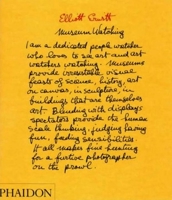 Elliott Erwitt
Museum Watching
I am a dedicated people watcher
who loves to see art and art
watchers watching. Museums
provide irresistible visual
feasts of science, history, art
on canvas, in sculpture, in
buildings that are themselves
art. Blending with displays
spectators provide the human
scale thinking, judging having
fun, finding sensibilities
It all makes fine hunting
for a furtive photographer
on the prowl.
PHAIDON